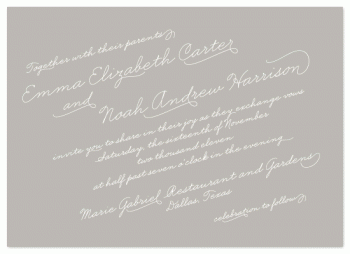 Together with their parents
Emma Elizabeth Carter
and
Noah Andrew Harrison
invite you to share in their joy as they exchange vows
Saturday, the sixteenth of November
two thousand eleven
at half past seven o'clock in the evening
Marie Gabriel Restaurant and Gardens
Dallas, Texas
celebration to follow